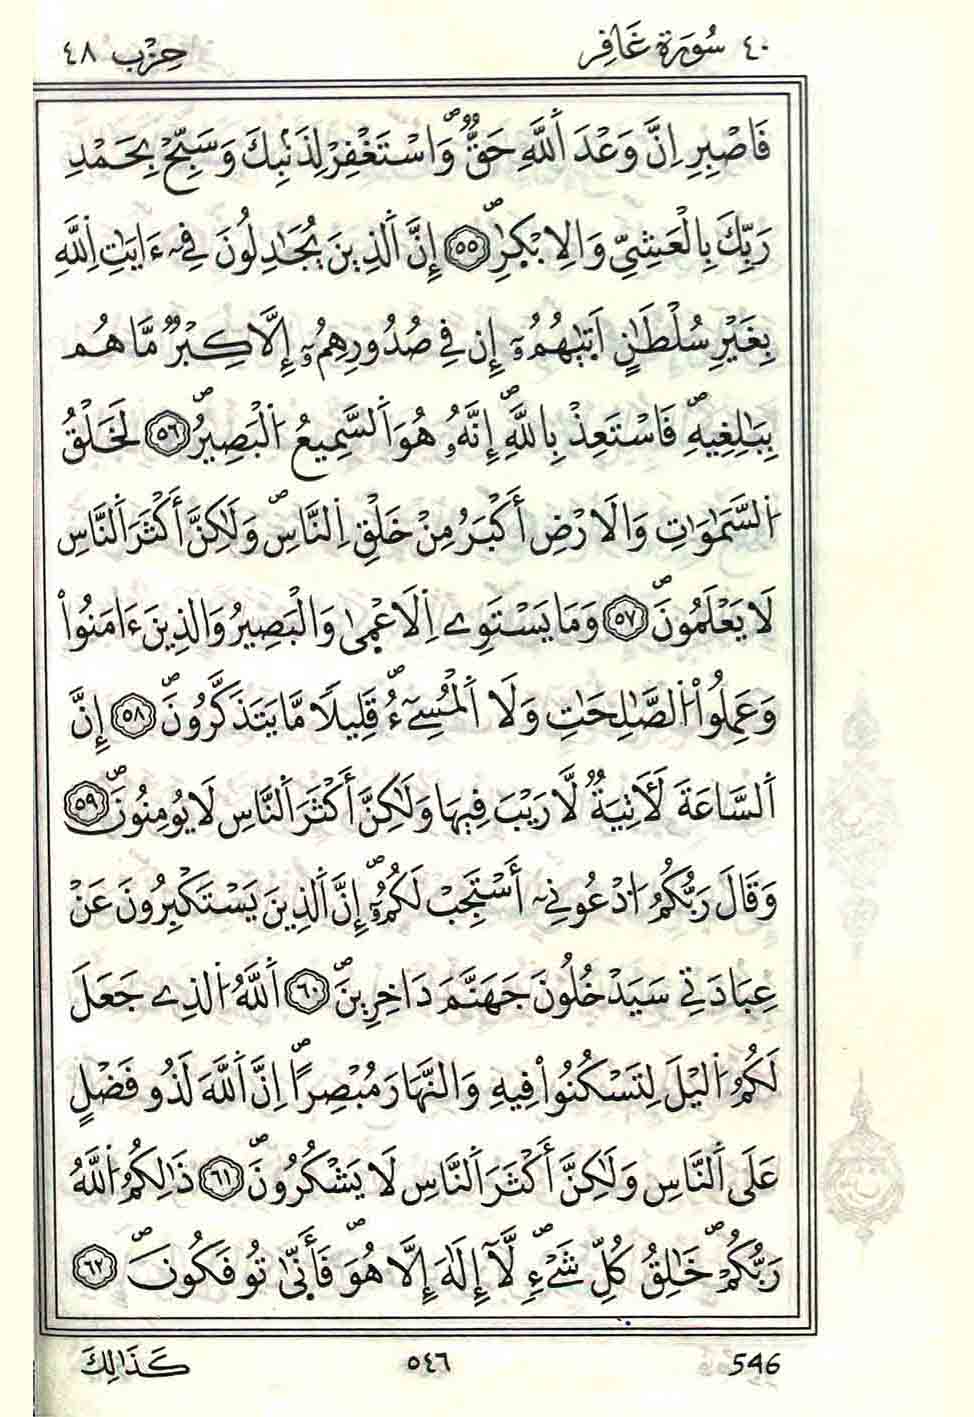 ٤٠ سُورَةُ غَافِرٍ حِزْب ٤٨
فَاصْبِرِ اِنَّ وَعْدَ اَ۬للَّهِ حَقّٞۖ وَاسْتَغْفِرْ لِذَنۢبِكَ وَسَبِّحْ بِحَمْدِ
رَبِّكَ بِالْعَشِيِّ وَالِابْكٰ۪رِۖ ٥٥ إِنَّ اَ۬لذِينَ يُجَٰدِلُونَ فِےٓ ءَايَٰتِ اِ۬للَّهِ
بِغَيْرِ سُلْطَٰنٍ اَت۪يٰهُمُۥٓ إِن فِے صُدُورِهِمُۥٓ إِلَّا كِبْرٞ مَّا هُم
بِبَٰلِغِيهِۖ فَاسْتَعِذْ بِاللَّهِۖ إِنَّهُۥ هُوَ اَ۬لسَّمِيعُ اُ۬لْبَصِيرُۖ ٥٦ لَخَلْقُ
اُ۬لسَّمَٰوَٰتِ وَالَارْضِ أَكْبَرُ مِنْ خَلْقِ اِ۬لنَّاسِۖ وَلَٰكِنَّ أَكْثَرَ اَ۬لنَّاسِ
لَا يَعْلَمُونَۖ ٥٧ وَمَا يَسْتَوِے اِ۬لَاعْم۪يٰ وَالْبَصِيرُ وَالذِينَ ءَامَنُواْ
وَعَمِلُواْ اُ۬لصَّٰلِحَٰتِ وَلَا اَ۬لْمُسِےٓءُۖ قَلِيلٗا مَّا يَتَذَكَّرُونَۖ ٥٨ إِنَّ
اَ۬لسَّاعَةَ لَأٓتِيَةٞ لَّا رَيْبَ فِيهَا وَلَٰكِنَّ أَكْثَرَ اَ۬لنَّاسِ لَا يُومِنُونَۖ ٥٩
وَقَالَ رَبُّكُمُ اُ۟دْعُونِےٓ أَسْتَجِبْ لَكُمُۥٓۖ إِنَّ اَ۬لذِينَ يَسْتَكْبِرُونَ عَنْ
عِبَادَتِے سَيَدْخُلُونَ جَهَنَّمَ دَاخِرِينَۖ ٦٠ اَ۬للَّهُ اُ۬لذِے جَعَلَ
لَكُمُ اُ۬ليْلَ لِتَسْكُنُواْ فِيهِ وَالنَّهَارَ مُبْصِراًۖ اِنَّ اَ۬للَّهَ لَذُو فَضْلٍ
عَلَى اَ۬لنَّاسِ وَلَٰكِنَّ أَكْثَرَ اَ۬لنَّاسِ لَا يَشْكُرُونَۖ ٦١ ذَٰلِكُمُ اُ۬للَّهُ
رَبُّكُمْۖ خَٰلِقُ كُلِّ شَےْءٖۖ لَّآ إِلَٰهَ إِلَّا هُوَۖ فَأَنّ۪يٰ تُوفَكُونَۖ ٦٢
546 ٥٤٦ كَذَٰلِكَ